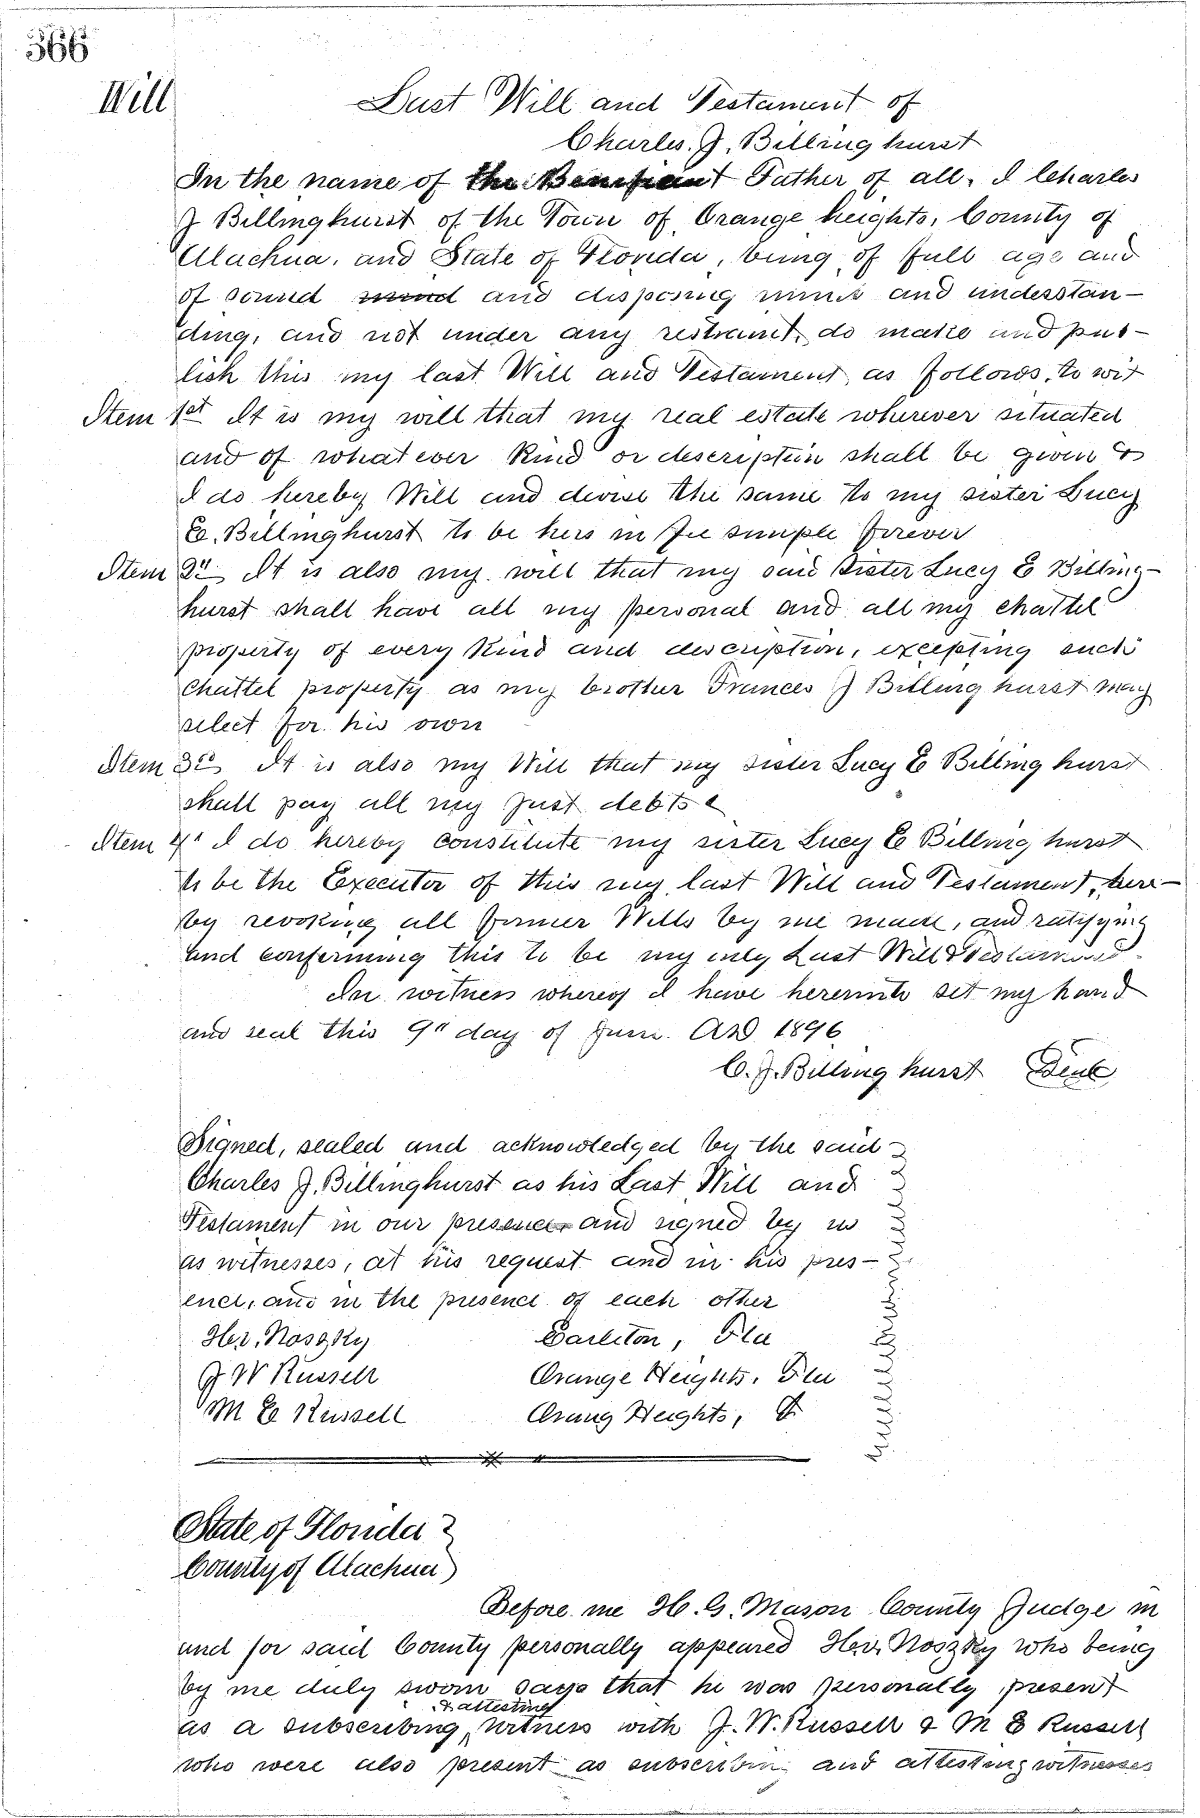 366
Will
Last Will and Testament of
Charles. J. Billinghurst
In the name of the Benificant Father of all, I Charles
J Billinghurst of the Town of Orange heights, County of
Alachua, and State of Florida, being of full age and
of sound mind and disposing mind and understan-
ding, and not under any restraint, do make and pub-
lish this my last Will and Testament, as follows, to wit
Item 1st It is my will that my real estate wherever situated
and of whatever kind or description shall be given &
I do hereby Will and devise the same to my sister Lucy
E. Billinghurst to be hers in fee simple forever
Item 2" It is also my will that my said Sister Lucy E Billing-
hurst shall have all my personal and all my chattel
property of every kind and description, excepting such
Chattel property as my brother Frances J Billinghurst may
select for his own
Item 3d It is also my Will that my sister Lucy E Billinghurst
shall pay all my just debts
Item 4" I do hereby constitute my sister Lucy E Billinghurst
to be the Executor of this my last Will and Testament, here-
by revoking all former Wills by me made, and ratifying
and confirming this to be my only Last Will & Testament.
In witness whereof I have hereunto set my hand
and seal this 9" day of June. AD. 1896
C. J. Billinghurst Seal
Signed, sealed and acknowledged by the said
Charles J. Billinghurst as his Last Will and
Testament in our presence and signed by us
as witnesses, at his request and in his pres-
ence, and in the presence of each other
Her. Noszky Earleton, Fla
J W Russell Orange Heights, Fla
M E Russell Orang Heights, F
State of Florida
County of Alachua
Before me H. G. Mason County Judge in
and for said County personally appeared Her. Noszky who being
by me duly sworn says that he was personally present
& attesting
as a subscribing witness with J. W. Russell & M E Russell
who were also present as subscribing and attesting witnesses